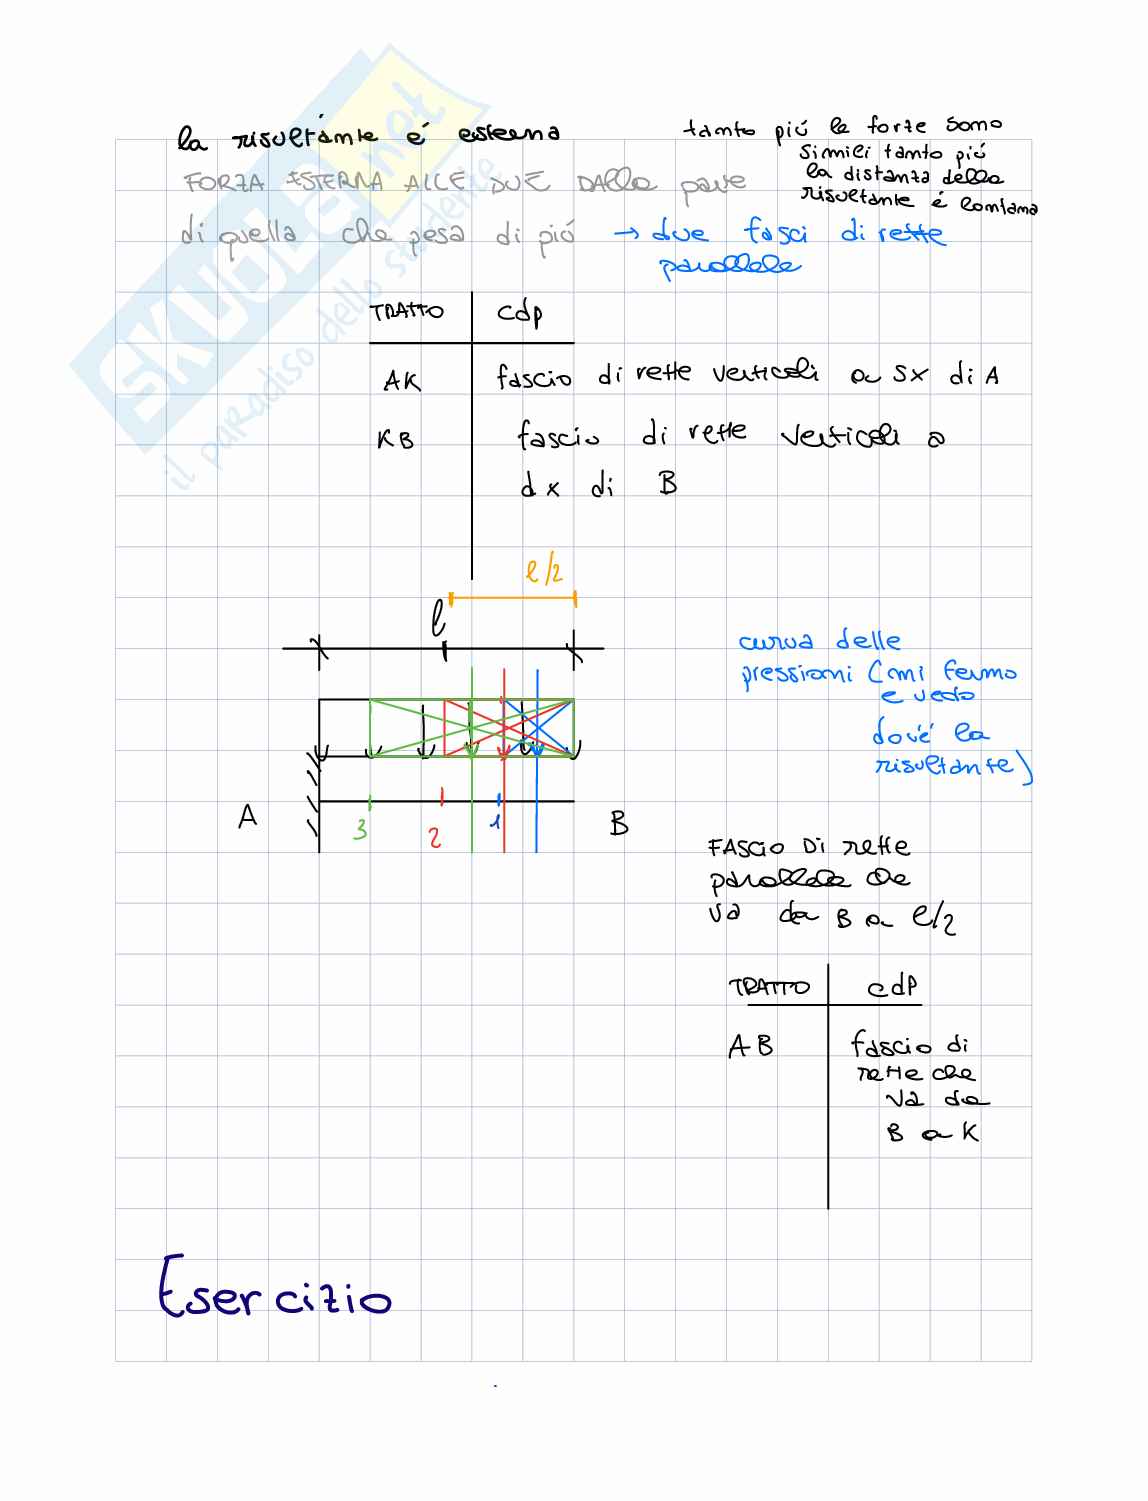 la risultante é esterna
FORZA ESTERNA ALLE DUE DALLA parte
di quella che pesa di piú → due fasci di rette
parallele
tanto piú le forze sono
simili tanto piú
la distanza della
risultante é lontana
TRATTO cdp
AK fascio di rette verticali a sx di A
KB fascio di rette verticali a
dx di B
l/2
l
A 3 2 1 B
curva delle
pressioni (mi fermo
e vedo
dov'é la
risultante)
FASCIO DI rette
parallele che
va da B a l/2
TRATTO cdP
AB fascio di
rette che
va da
B a K
Esercizio
SKUOLA.net
il paradiso dello studente